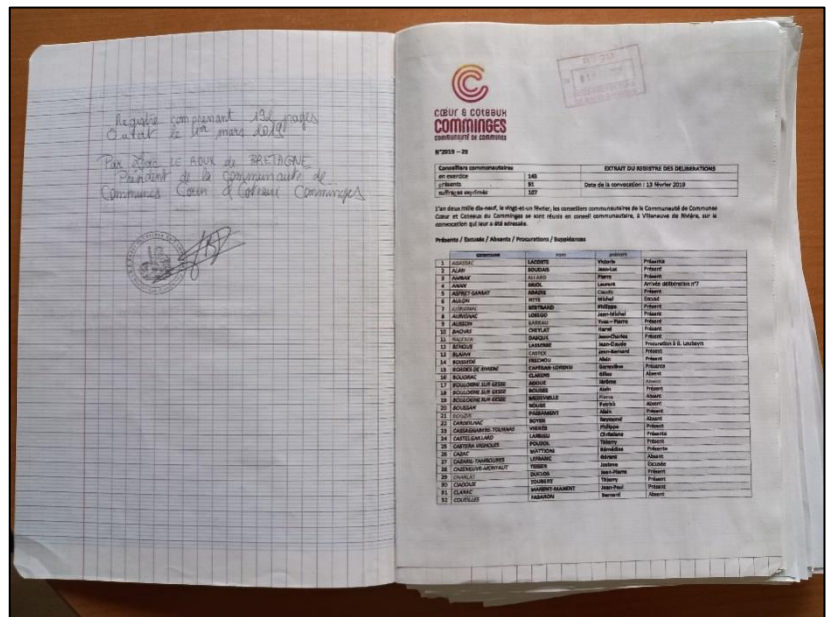 Registre comprenant 196 pages
Ouvert le 1er mars 2019
Par Loïc LE ROUX de BRETAGNE
Président de la Communauté de
Communes Coeur & Coteaux Comminges
cœur & coteaux
COMMINGES
communauté de communes
N°2019 – 20
Conseillers communautaires
EXTRAIT DU REGISTRE DES DELIBERATIONS
en exercice 145
présents 91 Date de la convocation : 13 février 2019
suffrages exprimés 107
L'an deux mille dix-neuf, le vingt-et-un février, les conseillers communautaires de la Communauté de Communes
Cœur et Coteaux du Comminges se sont réunis en conseil communautaire, à Villeneuve de Rivière, sur la
convocation qui leur a été adressée.
Présents / Excusés / Absents / Procurations / Suppléances
commune nom prénom
1 LACOSTE Victoria Présente
2 ALAN SOUDAIS Jean-Luc Présent
3 AMBAX ALLARD Pierre Présent
4 ANAN Laurent Arrivée délibération n°7
5 ASPRET-SARRAT ABADIE Claude Présent
6 AULON FITTE Michel Excusé
7 BERTRAND Philippe Présent
8 AURIGNAC LOSEGO Jean-Michel Présent
9 AUSSON Yves – Pierre Présent
10 BACHAS CHEYLAT Hervé Présent
11 Jean-Charles Présent
12 BENQUE LASSERRE Jean-Claude Procuration à G. Loubeyre
13 BLAJAN CASTEX Jean-Bernard Présent
14 BOISSEDE FRECHOU Alain Présent
15 BORDES DE RIVIERE CAPERAN-LORENZI Geneviève Présente
16 BOUDRAC CLARENS Gilles Absent
17 BOULOGNE SUR GESSE Jérôme Absent
18 BOULOGNE SUR GESSE BOUBEE Alain Présent
19 BOULOGNE SUR GESSE MEDEVIELLE Pierre Absent
20 BOUSSAN Patrick Absent
21 Alain Présent
22 CARDEILHAC BOYER Raymond Absent
23 CASSAGNABERE-TOURNAS Philippe Présent
24 CASTELGAILLARD Christiane Présente
25 CASTERA VIGNOLES POUZOL Thierry Présent
26 CAZAC MATTIONI Bénédicte Présente
27 CAZARIL-TAMBOURES LEFRANC Gérard Absent
28 CAZENEUVE-MONTAUT Josiane Excusée
29 CHARLAS DUCLOS Jean-Pierre Présent
30 CIADOUX Thierry Présent
31 CLARAC Jean-Paul Présent
32 COUEILLES FABARON Bernard Absent